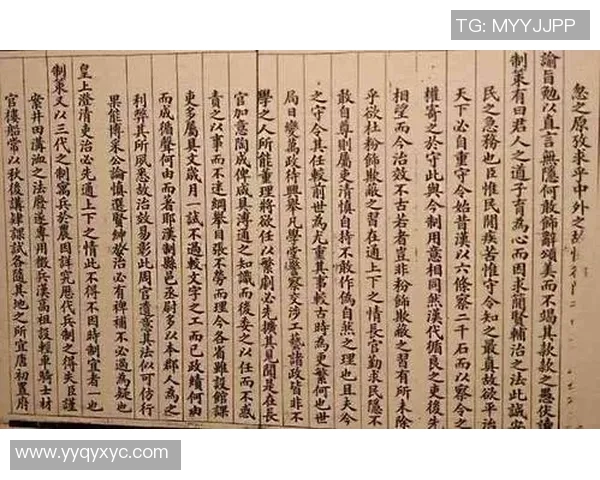 TG: MYYJJPP
忽之原攷求乎中外之故
諭旨勉以直言無隱何敢飾辭頌美而不竭其款款之愚伏讀
制策有曰君人之道子育為心而因求簡賢輔治之法此誠安
民之急務也臣惟民間疾苦惟守令知之最真故欲平治
天下必自重守令始昔漢以六條察二千石而以察令之
權寄之於守此與今制用意相同然漢代循良之吏後先
相望而今治效不古若者豈非粉飾欺蔽之習有所未除
乎欲杜粉飾欺蔽之習在通上下之情長官勤求民隱不
敢自尊則屬吏清慎自持不敢作偽自然之理也且夫今
之守令其任較前世為尤重其事較古時為更繁何也世
局日變萬政待興舉凡學堂警察交涉工藝諸政皆非不
學之人所能董理將欲任以繁劇必先擴其見聞是在長
官加意陶成俾咸具溥通之知識而後委之以任而不惑
責之以事而不迷綱舉目張不勞而理今各省雖設館課
吏多屬具文歲月一試不過較文字之工而已政績何由
而成循聲何由而著耶漢制縣邑丞尉多以本郡人為之
利弊其所夙悉故治效易彰此周官遺意其法似可仿行
果能博采公論慎選賢紳於治必有稗補不必過為疑也
皇上澄清吏治必先通上下之情此不得不因時制宜者一也
制策又以三代之制寓兵於農因詳究歷代兵制之得失臣謹
案井田溝洫之法廢遂專用徵兵漢高祖設輕車騎士材
官樓船常以秋後講肄課試各隨其地之所宜唐初置府
www.yyqyxyc.com
www.yyqyxyc.com